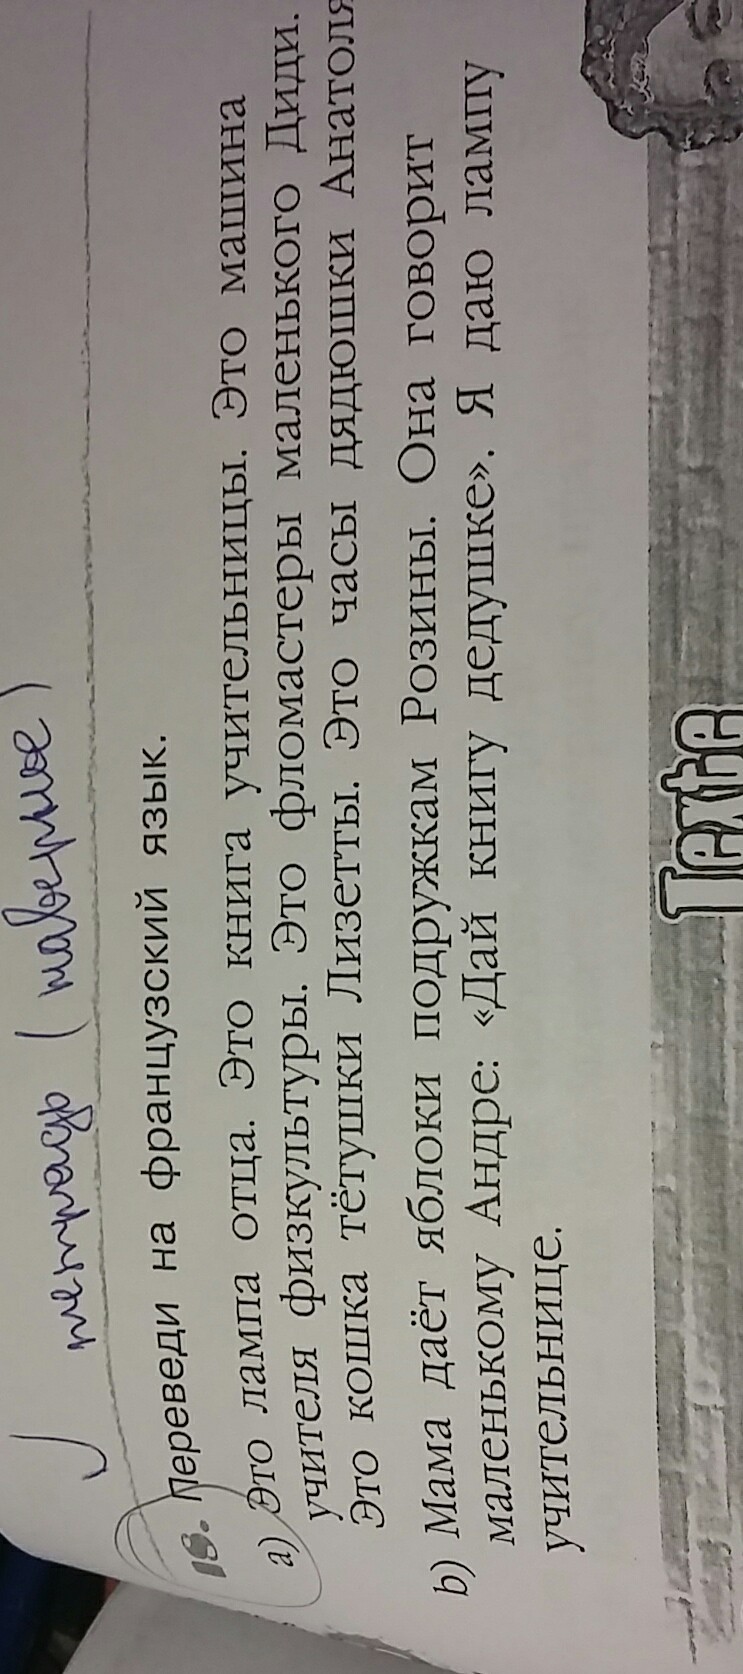 тетрадь (наверное)
18. Переведи на французский язык.
a) Это лампа отца. Это книга учительницы. Это машина
учителя физкультуры. Это фломастеры маленького Диди.
Это кошка тётушки Лизетты. Это часы дядюшки Анатоля
b) Мама даёт яблоки подружкам Розины. Она говорит
маленькому Андре: «Дай книгу дедушке». Я даю лампу
учительнице.
Texte